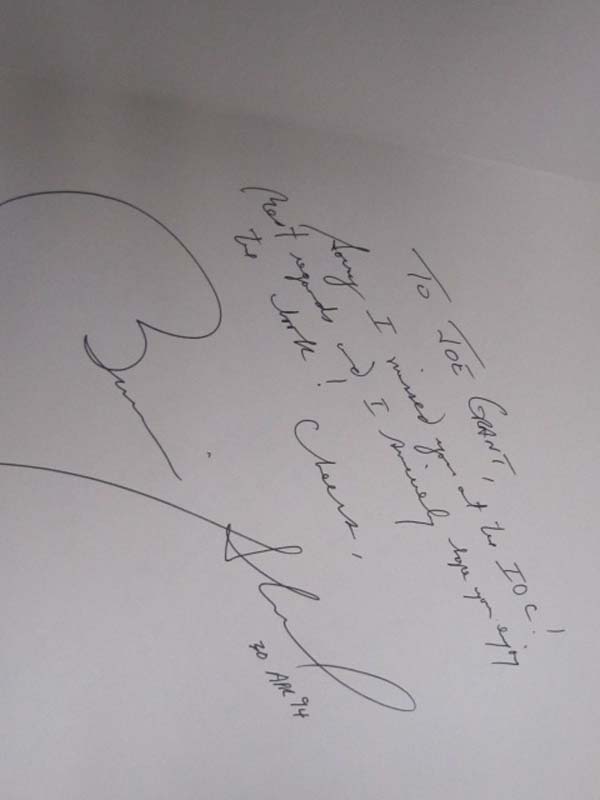 To JOE GRANT,
Sorry I missed you at the IOC!
Best regards and I sincerely hope you enjoy
the book!
Cheers,
30 APR 94